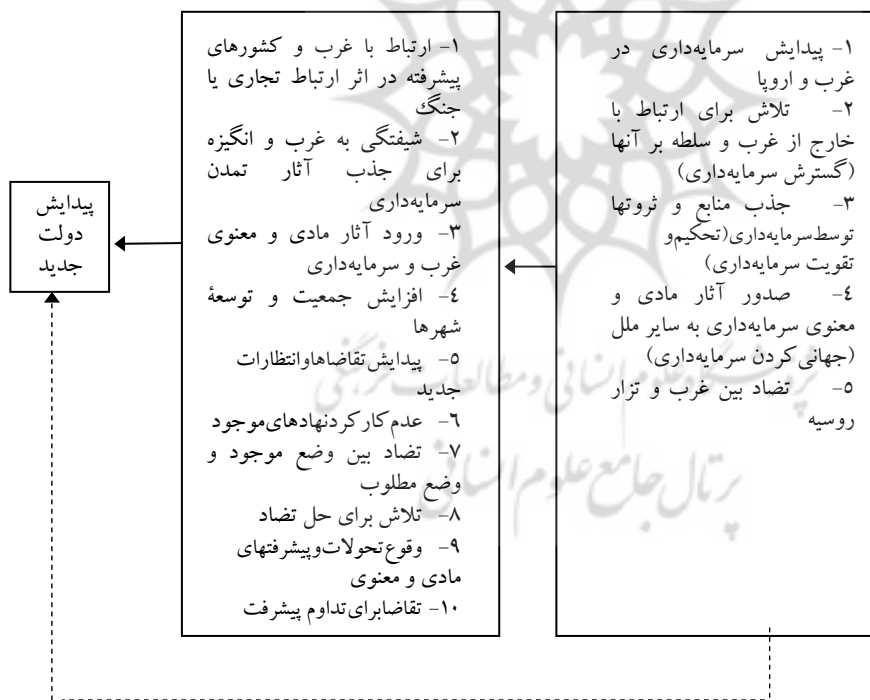 ۱- پیدایش سرمایه‌داری در
غرب و اروپا
۲- تلاش برای ارتباط با
خارج از غرب و سلطه بر آنها
(گسترش سرمایه‌داری)
۳- جذب منابع و ثروتها
توسط سرمایه‌داری(تحکیم و
تقویت سرمایه‌داری)
٤- صدور آثار مادی و
معنوی سرمایه‌داری به سایر ملل
(جهانی کردن سرمایه‌داری)
٥- تضاد بین غرب و تزار
روسیه
۱- ارتباط با غرب و کشورهای
پیشرفته در اثر ارتباط تجاری یا
جنگ
۲- شیفتگی به غرب و انگیزه
برای جذب آثار تمدن
سرمایه‌داری
۳- ورود آثار مادی و معنوی
غرب و سرمایه‌داری
٤- افزایش جمعیت و توسعهٔ
شهرها
٥- پیدایش تقاضاها و انتظارات
جدید
٦- عدم کارکرد نهادهای موجود
۷- تضاد بین وضع موجود و
وضع مطلوب
۸- تلاش برای حل تضاد
۹- وقوع تحولات و پیشرفتهای
مادی و معنوی
۱۰- تقاضا برای تداوم پیشرفت
پیدایش
دولت
جدید
پژوهشگاه علوم انسانی و مطالعات فرهنگی
پرتال جامع علوم انسانی